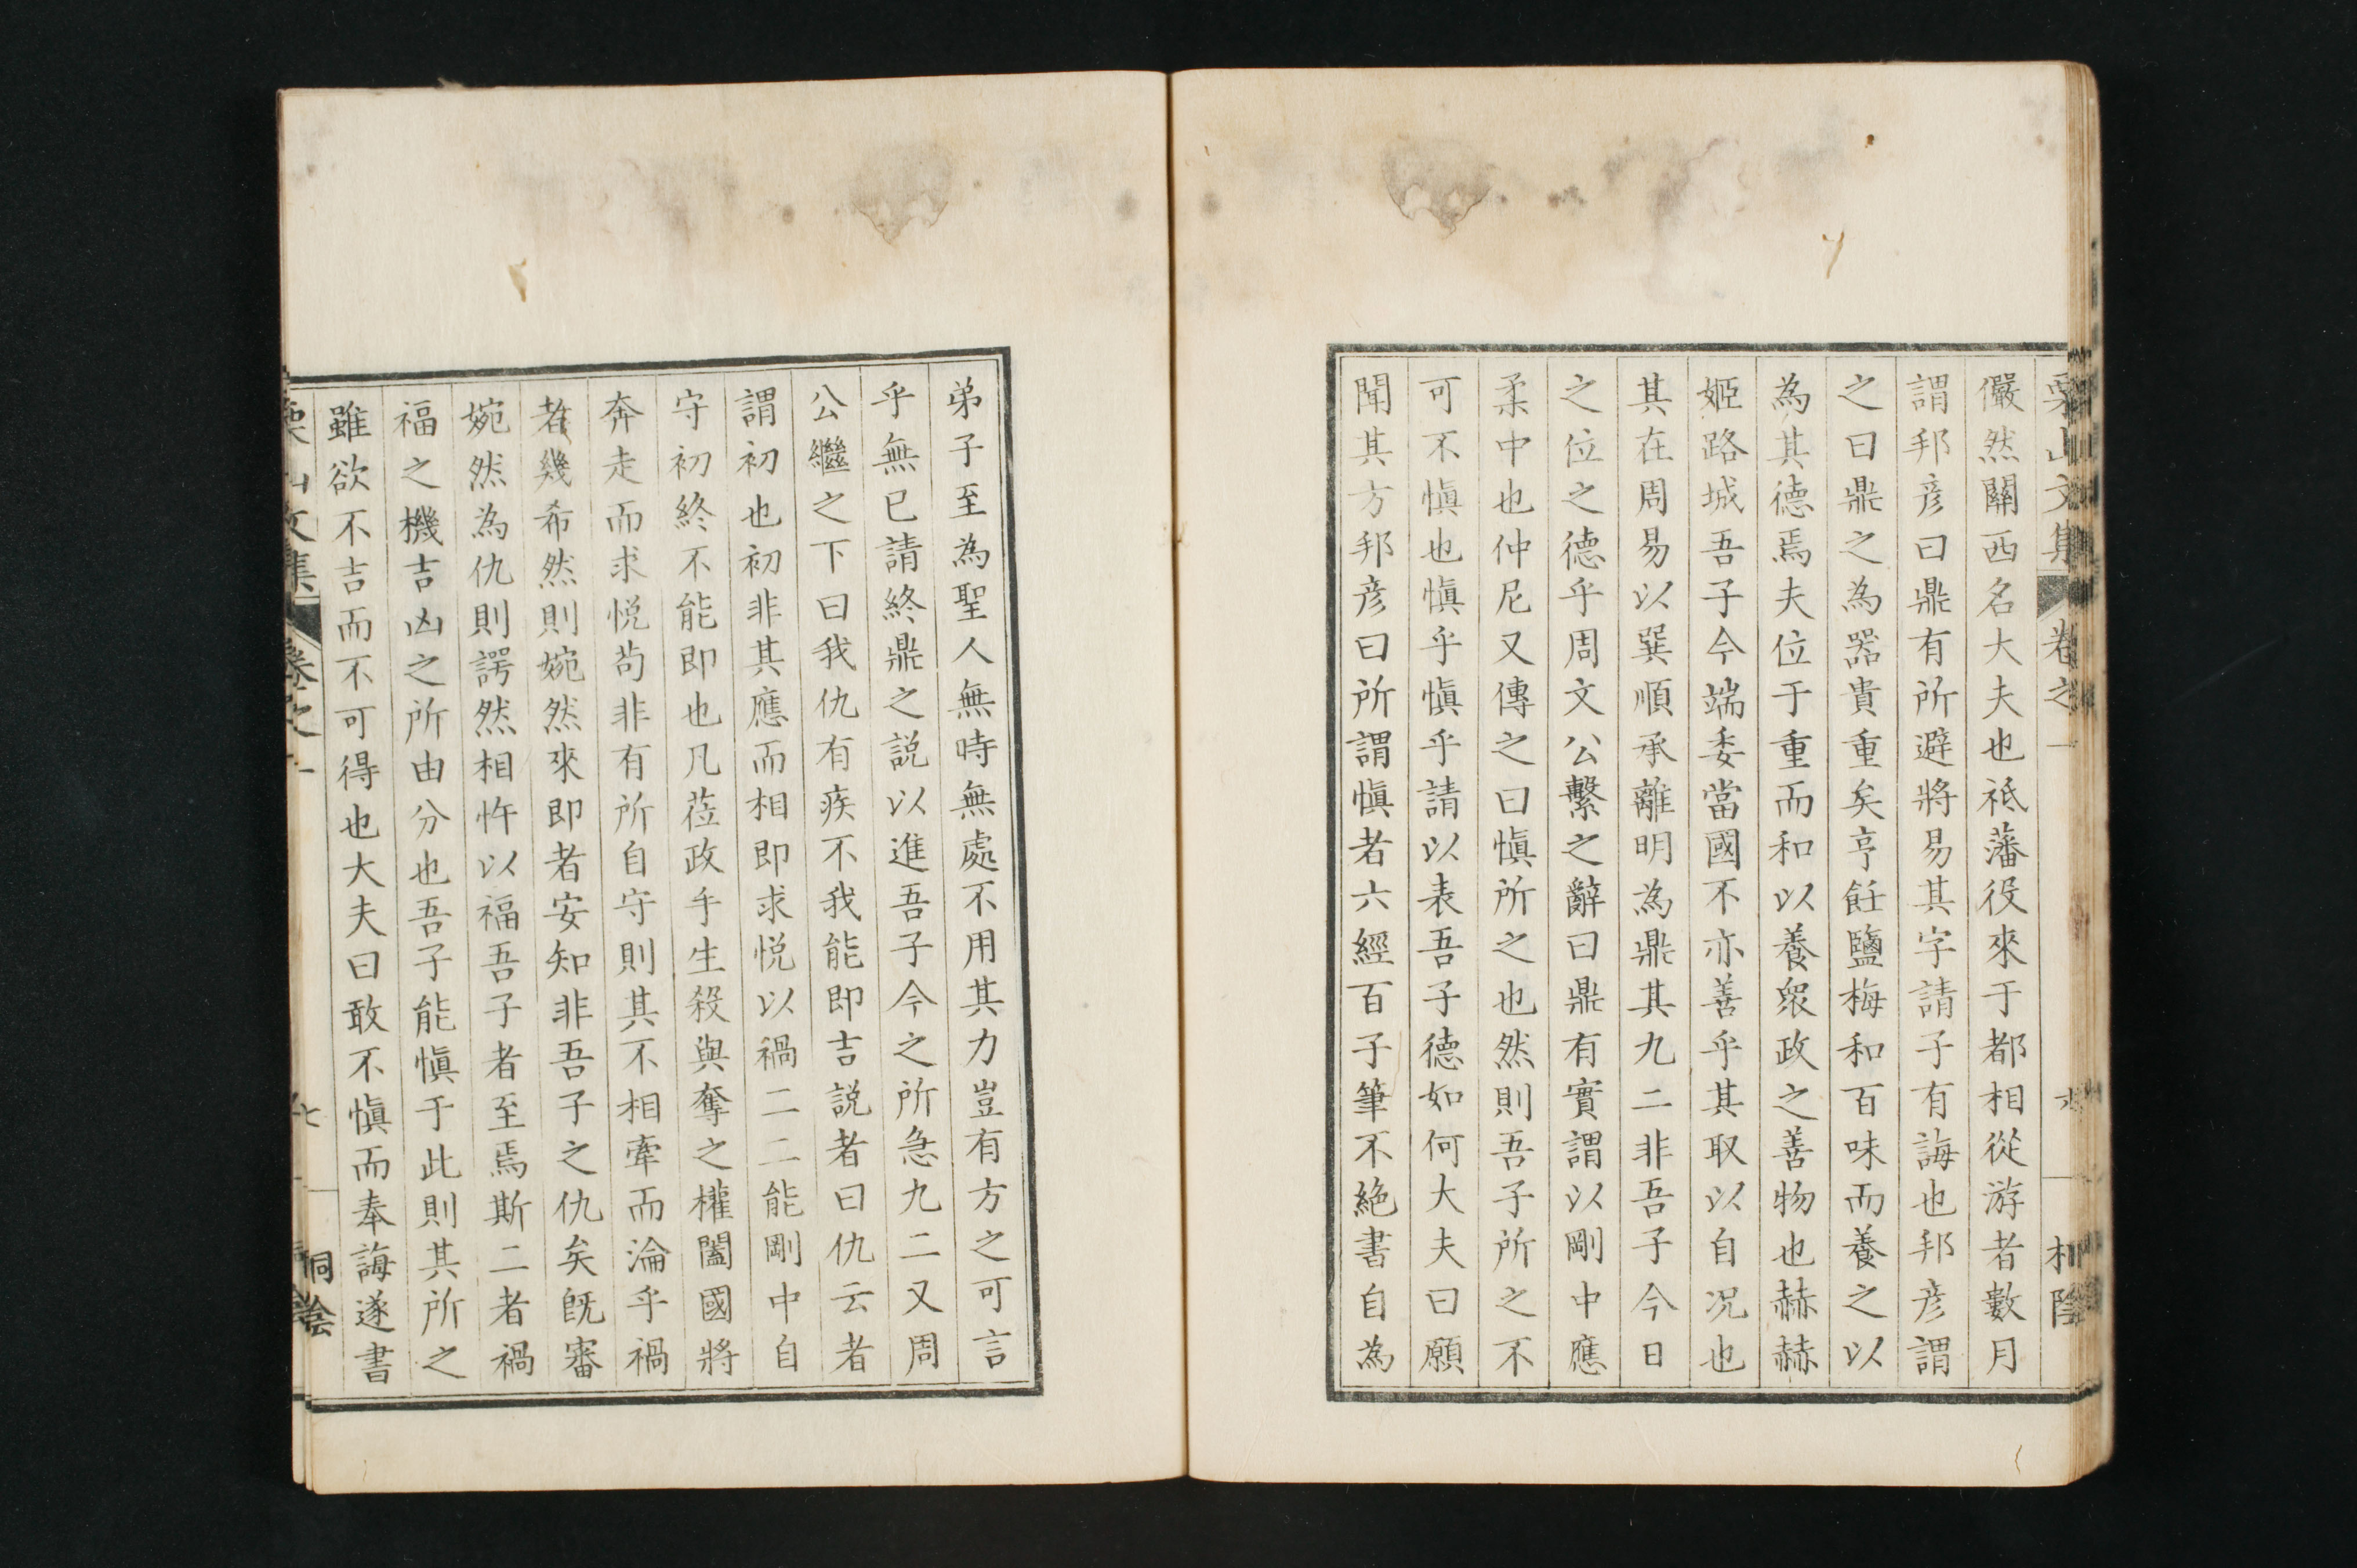 栗山文集 卷之一
儼然關西名大夫也祗藩役來于都相從游者數月
謂邦彦曰鼎有所避將易其字請子有誨也邦彦謂
之曰鼎之為器貴重矣亨飪鹽梅和百味而養之以
為其德焉夫位于重而和以養衆政之善物也赫赫
姬路城吾子今端委當國不亦善乎其取以自况也
其在周易以巽順承離明為鼎其九二非吾子今日
之位之德乎周文公繫之辭曰鼎有實謂以剛中應
柔中也仲尼又傳之曰愼所之也然則吾子所之不
可不愼也愼乎愼乎請以表吾子德如何大夫曰願
聞其方邦彦曰所謂愼者六經百子筆不絶書自為
弟子至為聖人無時無處不用其力豈有方之可言
乎無已請終鼎之説以進吾子今之所急九二又周
公繼之下曰我仇有疾不我能即吉説者曰仇云者
謂初也初非其應而相即求悦以禍二二能剛中自
守初終不能即也凡莅政乎生殺與奪之權闔國將
奔走而求悦苟非有所自守則其不相牽而淪乎禍
者幾希然則婉然來即者安知非吾子之仇矣既審
婉然為仇則諤然相忤以福吾子者至焉斯二者禍
福之機吉凶之所由分也吾子能愼于此則其所之
雖欲不吉而不可得也大夫曰敢不愼而奉誨遂書
栗山文集 卷之一 七